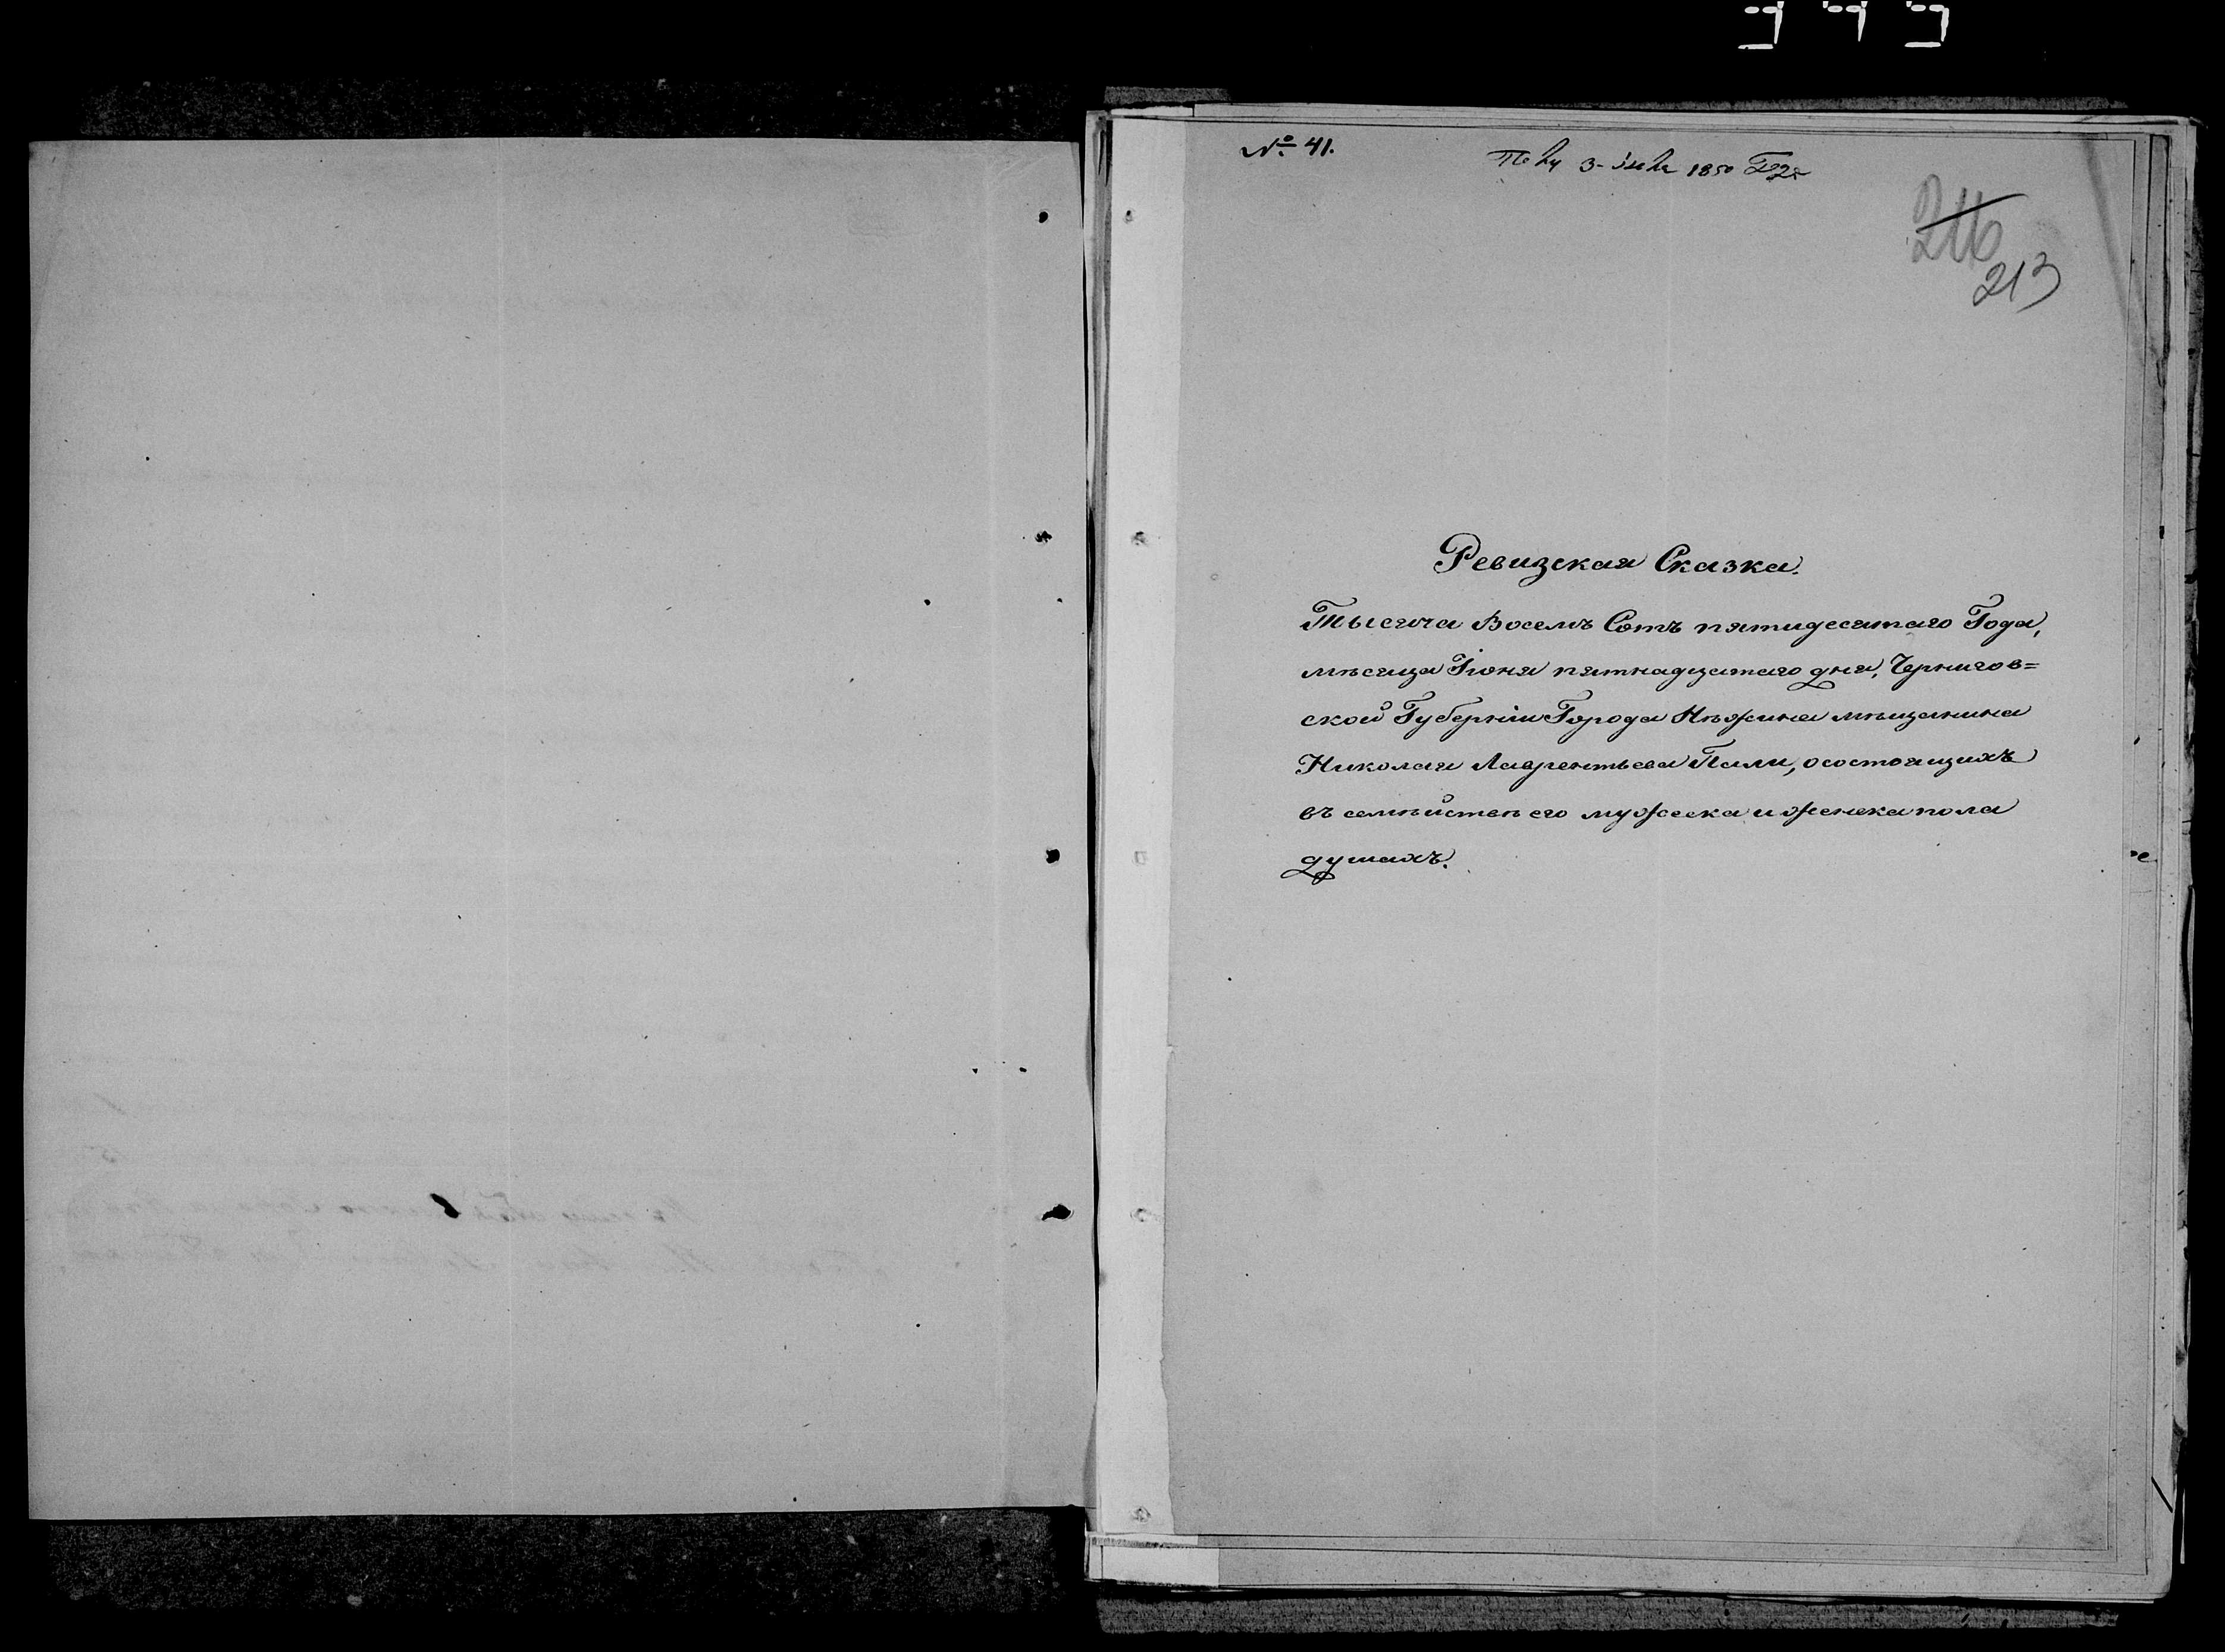 № 41.
1850
216
213
Ревизская Сказка.
Тысяча Восемъ Сотъ пятидесятаго Года,
мѣсяца Іюня пятнадцатаго дня, Чернигов=
ской Губерніи Города Нѣжина мѣщанина
Николая Лаврентьева Пали, о состоящихъ
въ семѣйствѣ его мужеска и женска пола
душахъ.